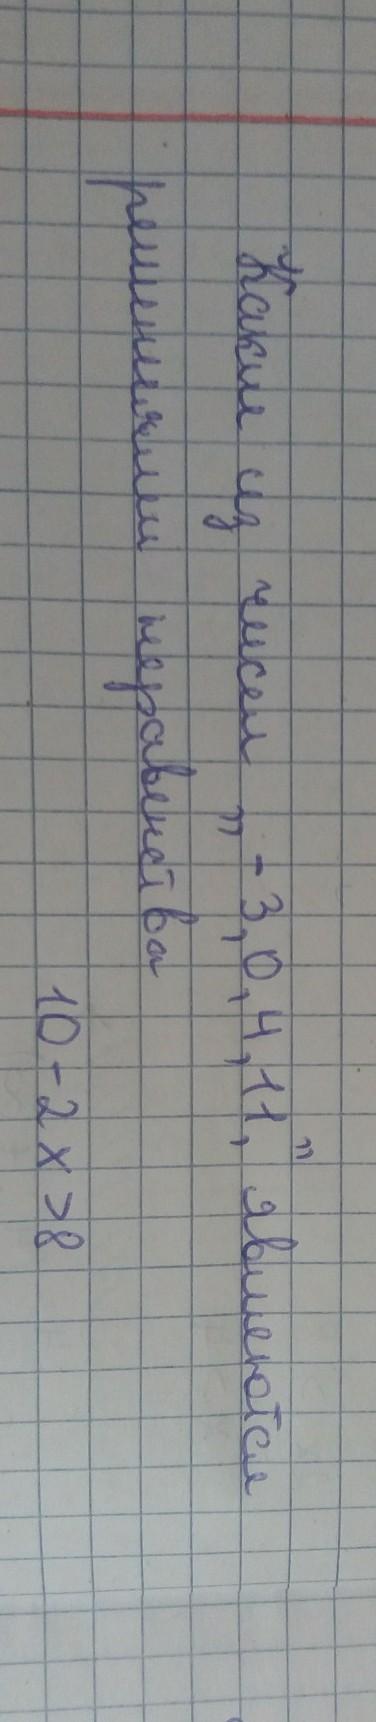 Какие из чисел "-3,0,4,11," являются
решениями неравенства
10-2x>8